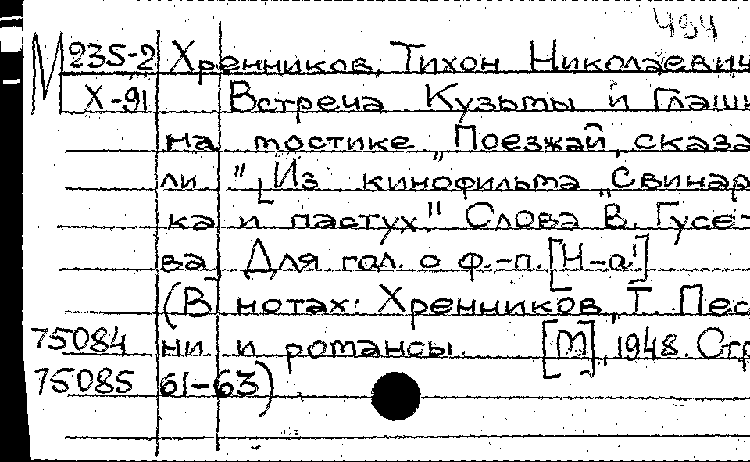 494
М 235-2 Хренников, Тихон Николаевич
Х-91 Встреча Кузьмы и Глаши
на мостике "Поезжай, сказа
ли " [Из кинофильма "Свинар
ка и пастух." Слова В. Гусе-
ва] Для гол. с ф.-п. [Н-а!]
(В нотах: Хренников, Т. Пес
75084 ни и романсы. [М], 1948. Стр
75085 61-63)